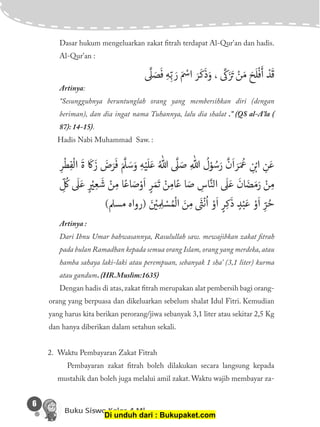 Dasar hukum mengeluarkan zakat fitrah terdapat Al-Qur'an dan hadis.
Al-Qur'an :
قَدْ أَفْلَحَ مَنْ تَزَكّٰى ، وَذَكَرَ اسْمَ رَبِّهٖ فَصَلّٰى
Artinya:
"Sesungguhnya beruntunglah orang yang membersihkan diri (dengan
beriman), dan dia ingat nama Tuhannya, lalu dia shalat ." (QS al-A'la (
87): 14-15).
Hadis Nabi Muhammad Saw. :
عَنِ ابْنِ عُمَرَ أَنَّ رَسُوْلَ اللّٰهِ صَلَّى اللّٰهُ عَلَيْهِ وَسَلَّمَ فَرَضَ زَكَا ةَ الْفِطْرِ
مِنْ رَمَضَانَ عَلَى النَّاسِ صَا عًا مِنْ تَمَرٍ أَوْصَاعًا مِنْ شَعِيْرٍ عَلَى كُلِّ
حُرٍّ أَوْ عَبْدٍ ذَكَرٍ أَوْ أُنْثَى مِنَ الْمُسْلِمِيْنَ (رواه مسلم)
Artinya :
Dari Ibnu Umar bahwasannya, Rasulullah saw. mewajibkan zakat fitrah
pada bulan Ramadhan kepada semua orang Islam, orang yang merdeka, atau
hamba sahaya laki-laki atau perempuan, sebanyak 1 sha' (3,1 liter) kurma
atau gandum. (HR.Muslim:1635)
Dengan hadis di atas, zakat fitrah merupakan alat pembersih bagi orang-
orang yang berpuasa dan dikeluarkan sebelum shalat Idul Fitri. Kemudian
yang harus kita berikan perorang/jiwa sebanyak 3,1 liter atau sekitar 2,5 Kg
dan hanya diberikan dalam setahun sekali.
2. Waktu Pembayaran Zakat Fitrah
Pembayaran zakat fitrah boleh dilakukan secara langsung kepada
mustahik dan boleh juga melalui amil zakat. Waktu wajib membayar za-
6
Buku Siswa Kelas 4 MI
Di unduh dari : Bukupaket.com